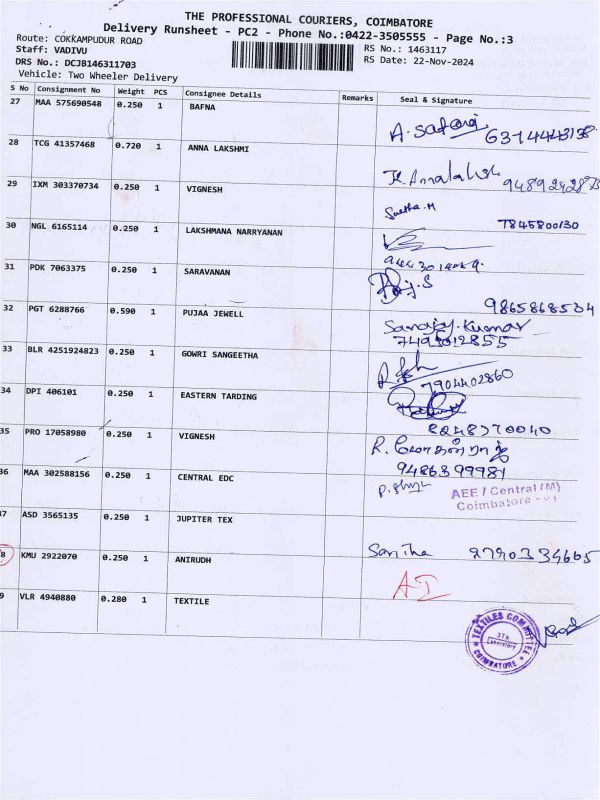 THE PROFESSIONAL COURIERS, COIMBATORE
Delivery Runsheet - PC2 - Phone No.:0422-3505555 - Page No.:3
Route: COKKAMPUDUR ROAD
RS No.: 1463117
Staff: VADIVU
RS Date: 22-Nov-2024
DRS No.: DCJB146311703
Vehicle: Two Wheeler Delivery
S No Consignment No Weight PCS Consignee Details Remarks Seal & Signature
27 MAA 575690548 0.250 1 BAFNA
28 TCG 41357468 0.720 1 ANNA LAKSHMI
29 IXM 303370734 0.250 1 VIGNESH
Swetha.M 7845800130
30 NGL 6165114 0.250 1 LAKSHMANA NARRYANAN
31 PDK 7063375 0.250 1 SARAVANAN
9865868534
32 PGT 6288766 0.590 1 PUJAA JEWELL
Sanajay.Kumar
33 BLR 4251924823 0.250 1 GOWRI SANGEETHA
7904402860
34 DPI 406101 0.250 1 EASTERN TARDING
8248370040
35 PRO 17058980 0.250 1 VIGNESH
9486399981
36 MAA 302588156 0.250 1 CENTRAL EDC
AEE / Central (M)
Coimbatore
37 ASD 3565135 0.250 1 JUPITER TEX
38 KMU 2922070 0.250 1 ANIRUDH
Saritha
AI
9 VLR 4940880 0.280 1 TEXTILE
TEXTILES COMMITTEE
Laboratory
COIMBATORE